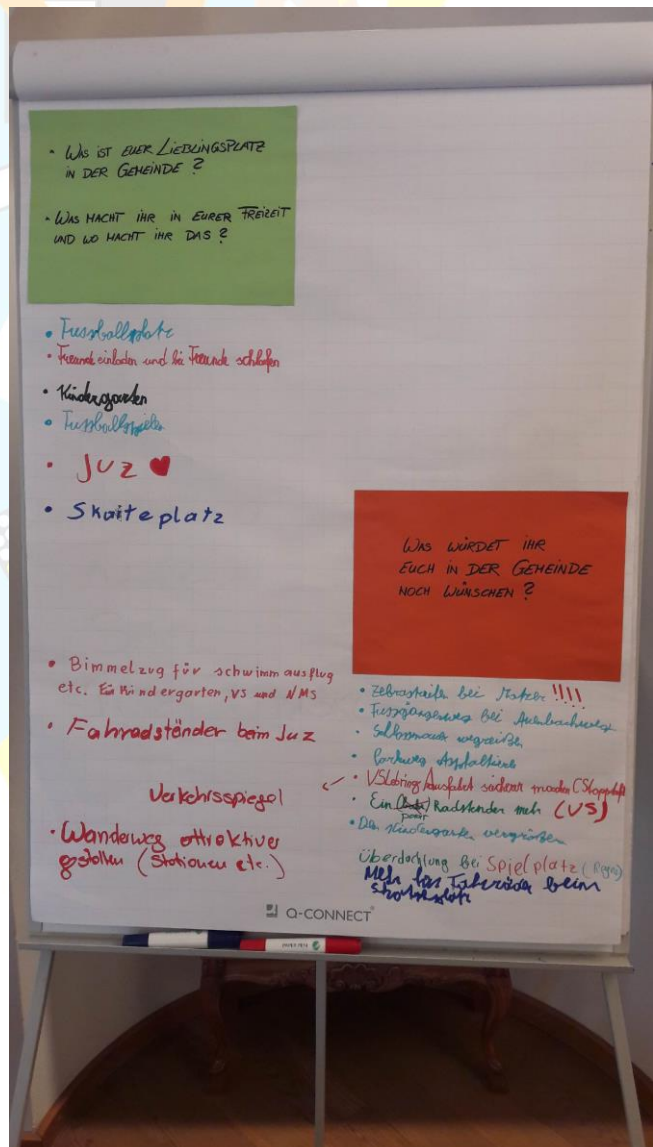 • WAS IST EUER LIEBLINGSPLATZ
IN DER GEMEINDE?
• WAS MACHT IHR IN EURER FREIZEIT
UND WO MACHT IHR DAS?
• Fussballplatz
• Freunde einladen und bei Freunde schlafen
• Kindergarten
• Fussballspielen
• JUZ ♥
• Skaiteplatz
WAS WÜRDET IHR
EUCH IN DER GEMEINDE
NOCH WÜNSCHEN?
• Bimmelzug für schwimmausflug
etc. Kindergarten, VS und NMS
• Fahradständer beim Juz
Verkehrsspiegel
• Wanderweg attraktiver
gestallen (Stationen etc.)
• Zebrastreifen bei !!!!
• Fussgängerweg bei
•
• Parkweg Asphaltieren
• VS Ausfahrt machen
• Ein paar Radstender mehr (VS)
• Den Kindergarten vergrößern
Überdachung bei Spielplatz
Mehr Fahrräder beim
Q-CONNECT